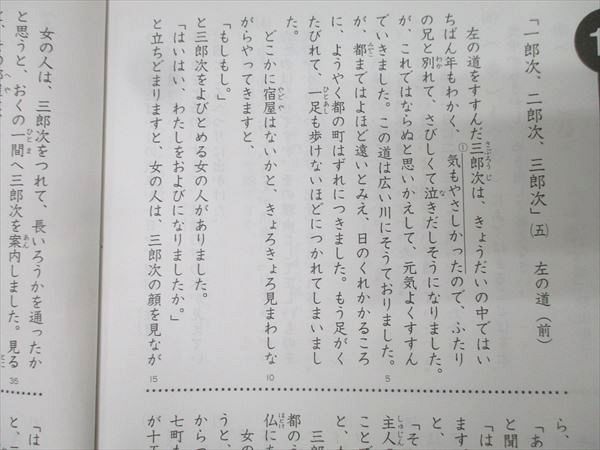 「一郎次、二郎次、三郎次」㈤ 左の道（前）
左の道をすすんだ三郎次は、きょうだいの中ではい
ちばん年もわかく、①気もやさしかったので、ふたり
の兄と別れて、さびしくて泣きだしそうになりました。
が、これではならぬと思いかえして、元気よくすすん
でいきました。この道は広い川にそうておりました。
が、都まではよほど遠いとみえ、日のくれかかるころ
に、ようやく都の町はずれにつきました。もう足がく
たびれて、一足も歩けないほどにつかれてしまいまし
た。
どこかに宿屋はないかと、きょろきょろ見まわしな
がらやってきますと、
「もしもし。」
と三郎次をよびとめる女の人がありました。
「はいはい、わたしをおよびになりましたか。」
と立ちどまりますと、女の人は、三郎次の顔を見なが
5
10
15
ら、
「あ
と聞
「は
ます
と、
「そ
主人の
ことで
と、
三郎
都の
仏に
女の
うと、
からっ
七町も
が十五
女の人は、三郎次をつれて、長いろうかを通ったか
と思うと、おくの一間へ三郎次を案内しました。見る
35
「は